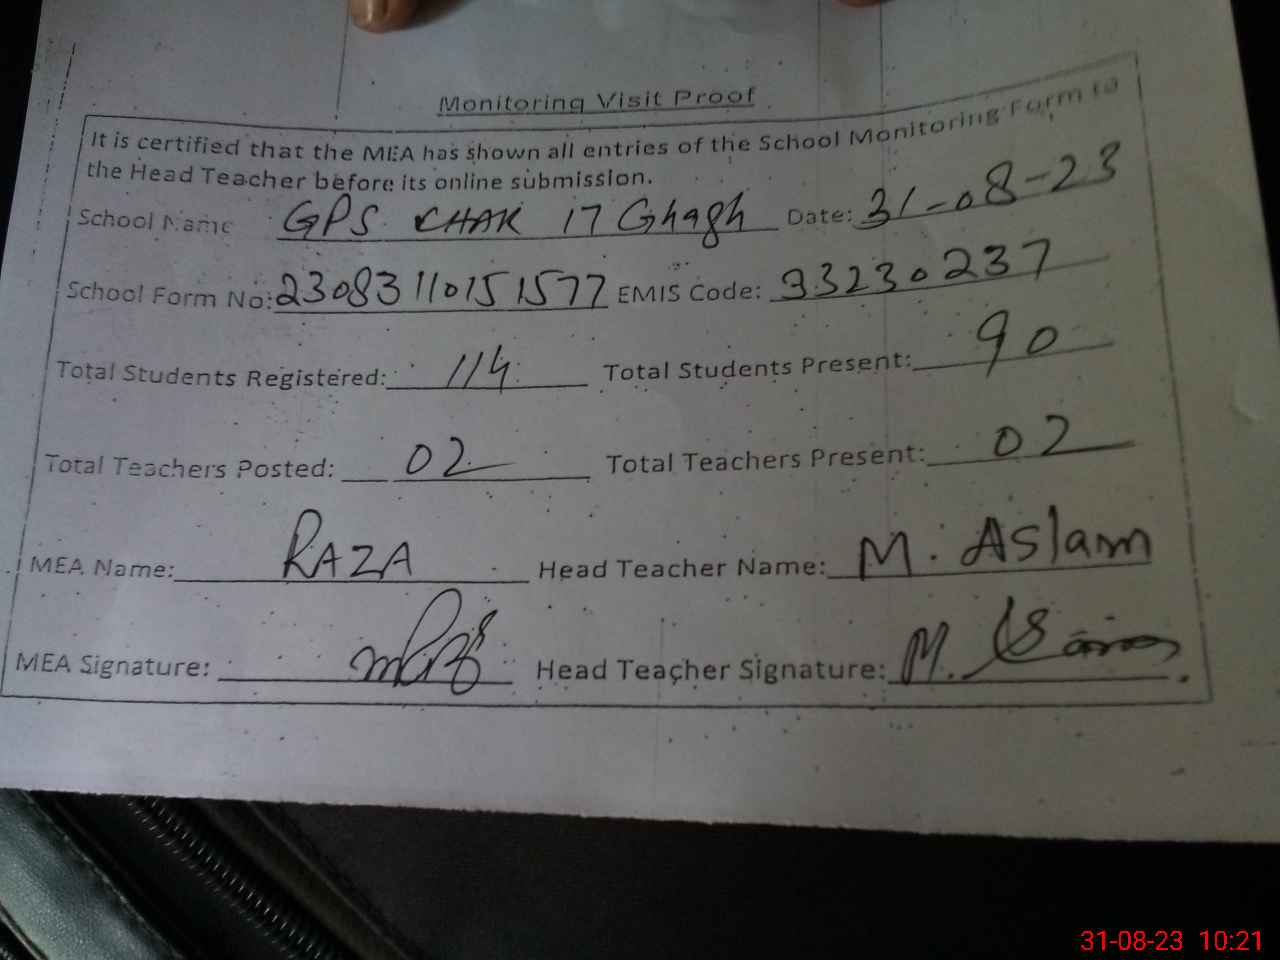 Monitoring Visit Proof
It is certified that the MEA has shown all entries of the School Monitoring Form to
the Head Teacher before its online submission.
School Name GPS. CHAK 17 Ghagh Date: 31-08-23
School Form No: 23083110151577 EMIS Code: 33230237
Total Students Registered: 114 Total Students Present: 90
Total Teachers Posted: 02 Total Teachers Present: 02
MEA Name: RAZA Head Teacher Name: M. Aslam
MEA Signature: Head Teacher Signature: M.
31-08-23 10:21